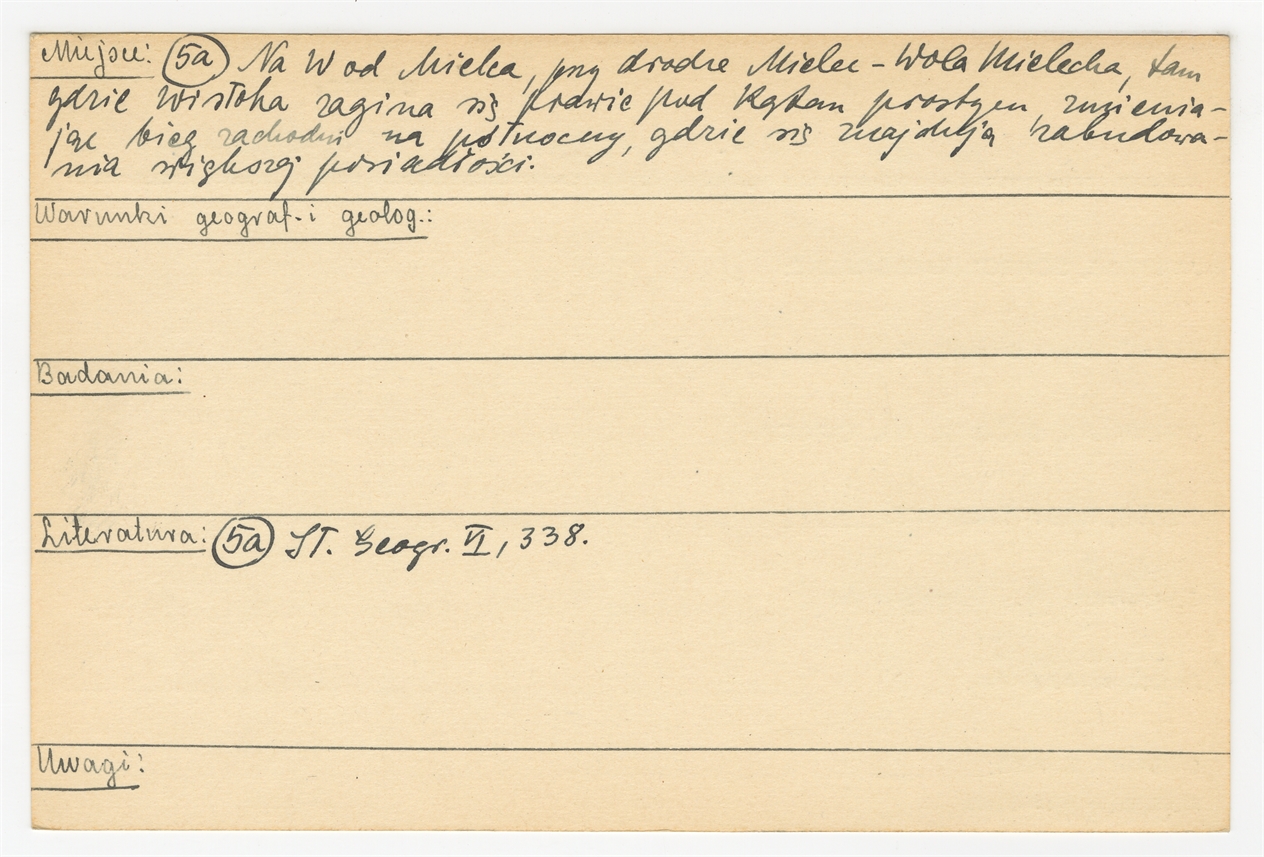 Miejsce: 5a Na W od Mielca, przy drodze Mielec - Wola Mielecka, tam
gdzie Wisłoka zagina się prawie pod kątem prostym zmienia-
jąc bieg zachodni na północny, gdzie się znajdują zabudowa-
nia większej posiadłości.
Warunki geograf. i geolog.:
Badania:
Literatura: 5a Sł. Geogr. VI, 338.
Uwagi: